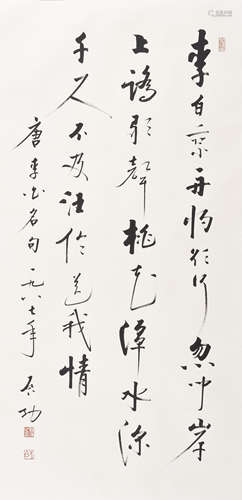 李白乘舟將欲行忽聞岸
上踏歌聲桃花潭水深
千尺不及汪倫送我情
唐李白名句一九八七年 启功